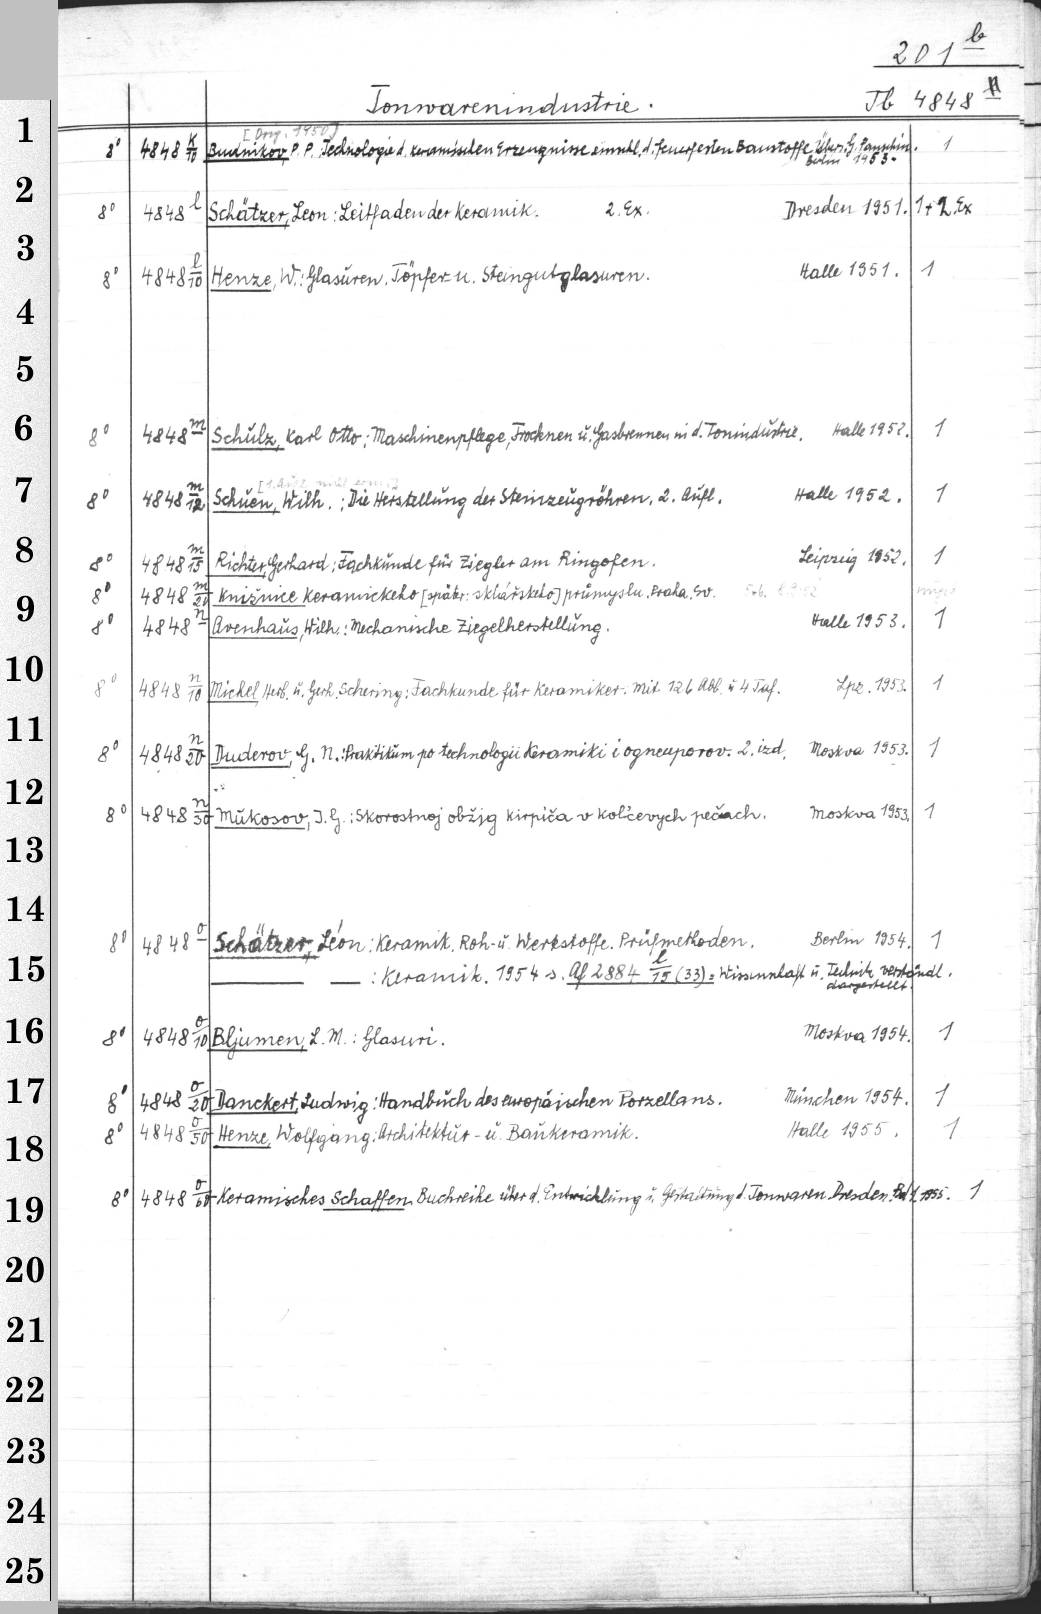 201 b
Tonwarenindustrie. Tb 4848 H
[Orig. 1950]
1 8° 4848 k/10 Budnikov, P. P. Technologie d. keramischen Erzeugnisse einschl. d. feuerfesten Baustoffe. Übers. G. 1
Berlin 1953.
2 8° 4848 l Schätzer, Leon: Leitfaden der Keramik. 2. Ex. Dresden 1951. 1+2.Ex
3 8° 4848 l/10 Henze, W.: Glasuren. Töpfer- u. Steingutglasuren. Halle 1951. 1
4
5
6 8° 4848 m Schulz, Karl Otto: Maschinenpflege, Trocknen u. Gasbrennen in d. Tonindustrie. Halle 1952. 1
[1. Aufl. nicht erm.]
7 8° 4848 m/12 Schuen, Wilh.: Die Herstellung der Steinzeugröhren. 2. Aufl. Halle 1952. 1
8 8° 4848 m/15 Richter, Gerhard: Fachkunde für Ziegler am Ringofen. Leipzig 1952. 1
8° 4848 m/20 Knižnice keramického [spätr: sklářského] průmyslu. Praha. Sv.
9 8° 4848 n Avenhaus, Wilh.: Mechanische Ziegelherstellung. Halle 1953. 1
10 8° 4848 n/10 Michel, Herb. u. Gerh. Schering: Fachkunde für Keramiker. Mit 126 Abb. u 4 Taf. Lpz. 1953. 1
11 8° 4848 n/20 Duderov, G. N.: Praktikum po technologii keramiki i ogneuporov. 2. izd. Moskva 1953. 1
12 8° 4848 n/50 Mukosov, I. G.: Skorostnoj obžig kirpiča v kol'cevych pečach. Moskva 1953. 1
13
14 8° 4848 o Schätzer, Léon: Keramik. Roh- u. Werkstoffe. Prüfmethoden. Berlin 1954. 1
15 — — : Keramik. 1954 s. Af 2884 l/15 (33) = Wissenschaft u. Technik verständl.
dargestellt.
16 8° 4848 o/10 Bljumen, L. M.: Glasuri. Moskva 1954. 1
17 8° 4848 o/20 Danckert, Ludwig: Handbuch des europäischen Porzellans. München 1954. 1
18 8° 4848 o/50 Henze, Wolfgang: Architektur- u. Baukeramik. Halle 1955. 1
19 8° 4848 o/60 Keramisches Schaffen. Buchreihe über d. Entwicklung u. Gestaltung d. Tonwaren. Dresden. Bd 1. 1955. 1
20
21
22
23
24
25